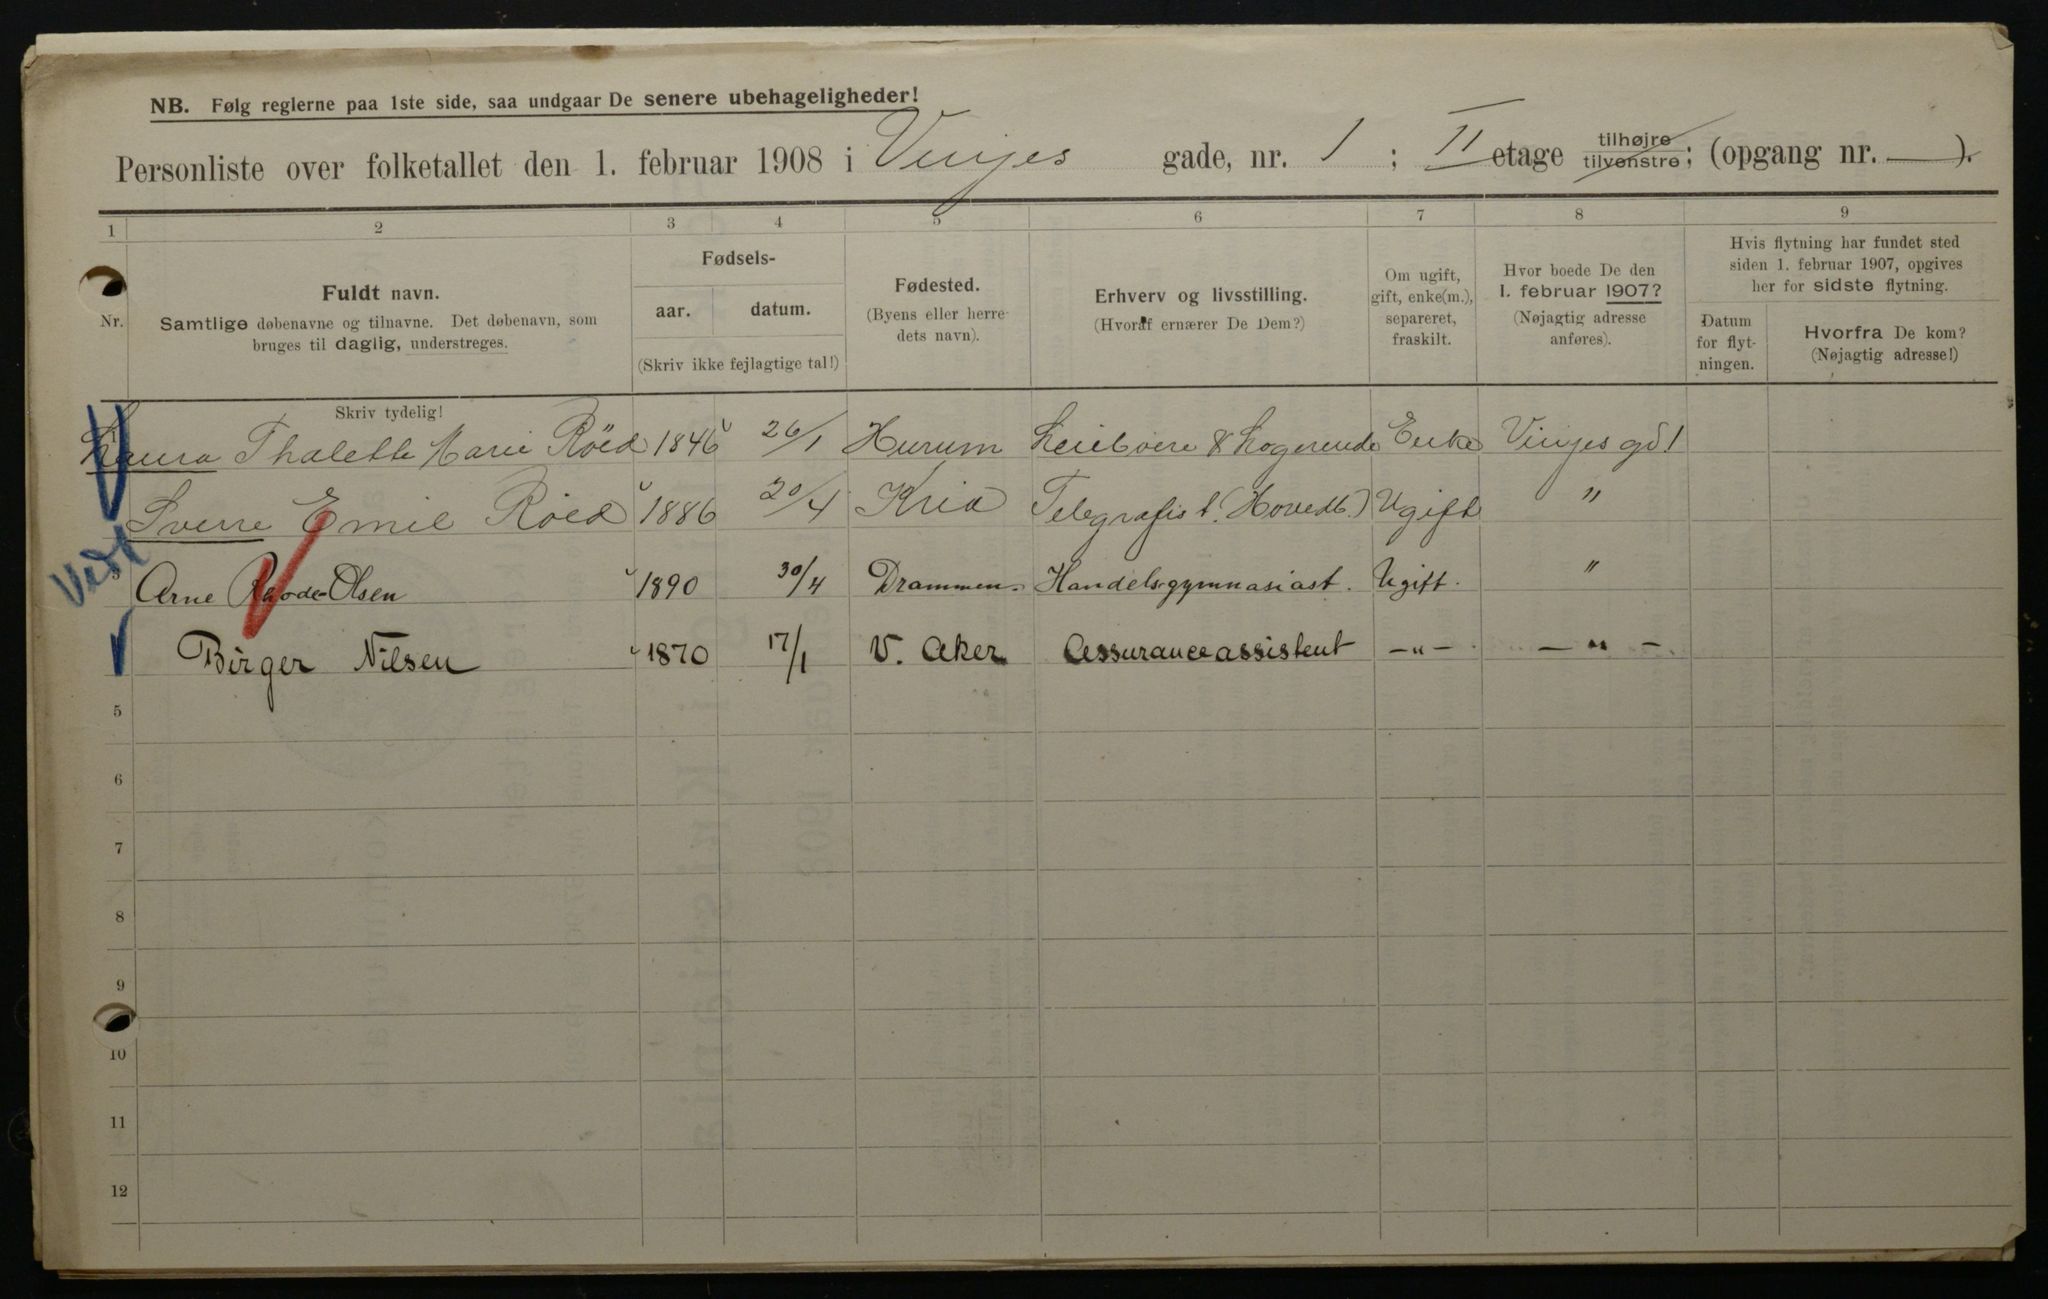 NB. Følg reglerne paa 1ste side, saa undgaar De senere ubehageligheder!
Personliste over folketallet den 1. februar 1908 i Vinjes gade, nr. 1 ; II etage tilhøjre tilvenstre; (opgang nr. — ).
1 2 3 4 5 6 7 8 9
Nr.
Fuldt navn.
Samtlige døbenavne og tilnavne. Det døbenavn, som
bruges til daglig, understreges.
Fødsels-
aar. datum.
(Skriv ikke fejlagtige tal!)
Fødested.
(Byens eller herre-
dets navn).
Erhverv og livsstilling.
(Hvoraf ernærer De Dem?)
Om ugift,
gift, enke(m.),
separeret,
fraskilt.
Hvor boede De den
1. februar 1907?
(Nøjagtig adresse
anføres).
Hvis flytning har fundet sted
siden 1. februar 1907, opgives
her for sidste flytning.
Datum
for flyt-
ningen.
Hvorfra De kom?
(Nøjagtig adresse!)
Skriv tydelig!
Laura Thalette Marie Röed 1846 26/1 Hurum Leieboere & Logerende Enke Vinjes gd 1
Sverre Emil Röed 1886 20/4 Kria Telegrafist. (Hovedt.) Ugift "
Vedt
3 Arne Olsen 1890 30/4 Drammen. Handelsgymnasiast. Ugift. "
Birger Nilsen 1870 17/1 V. Aker Assuranceassistent —"— —"—
5
6
7
8
9
10
11
12